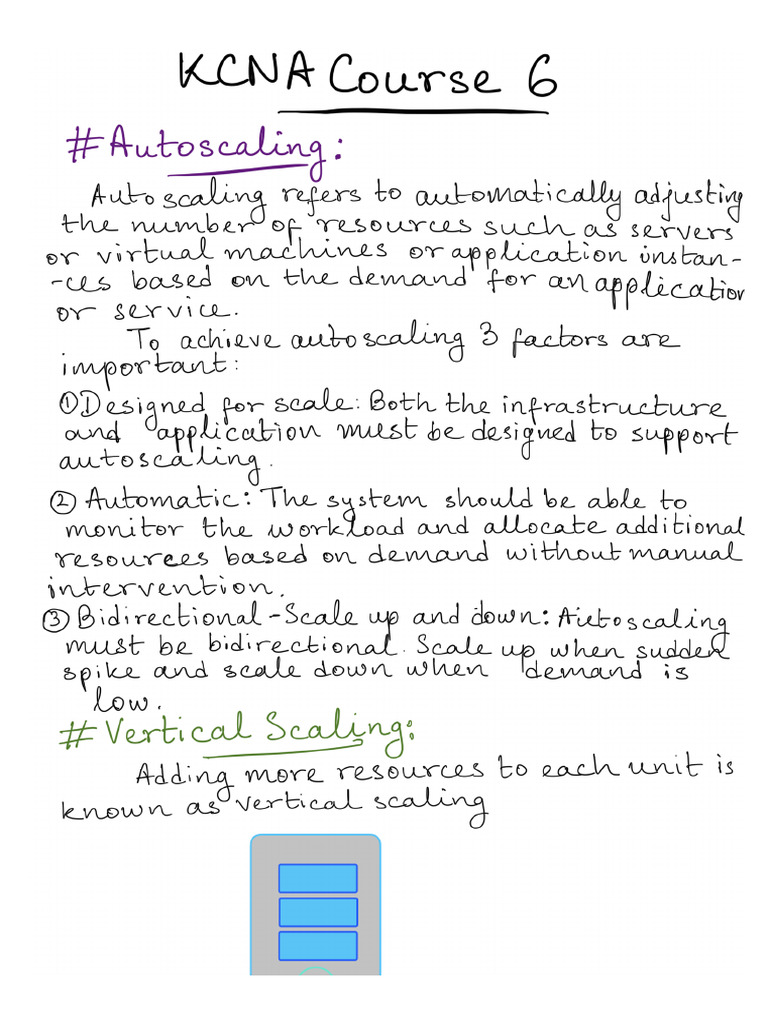 KCNA Course 6
# Autoscaling:
Autoscaling refers to automatically adjusting
the number of resources such as servers
or virtual machines or application instan-
-ces based on the demand for an application
or service.
To achieve autoscaling 3 factors are
important:
① Designed for scale: Both the infrastructure
and application must be designed to support
autoscaling.
② Automatic: The system should be able to
monitor the workload and allocate additional
resources based on demand without manual
intervention.
③ Bidirectional-Scale up and down: Autoscaling
must be bidirectional. Scale up when sudden
spike and scale down when demand is
low.
# Vertical Scaling:
Adding more resources to each unit is
known as vertical scaling